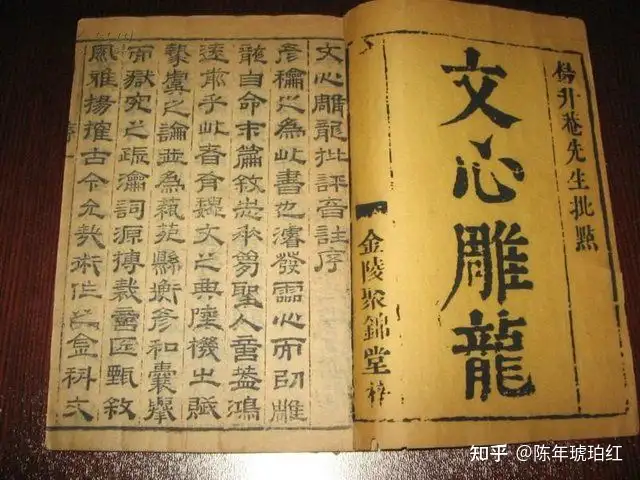 楊升菴先生批點
文心雕龍
金陵聚錦堂梓
文心雕龍批評音註序
彥龢之為此書也濬發靈心而以雕
龍自命末篇敘志夢聖人意葢鴻
遠前乎此者有魏文之典陸機之賦
摯虞之論並為藝苑縣衡彥和囊舉
而獄究之疏瀹詞源摶裁意匠甄敘
風雅揚搉古今允哉術作之金科文
知乎 @陈年琥珀红